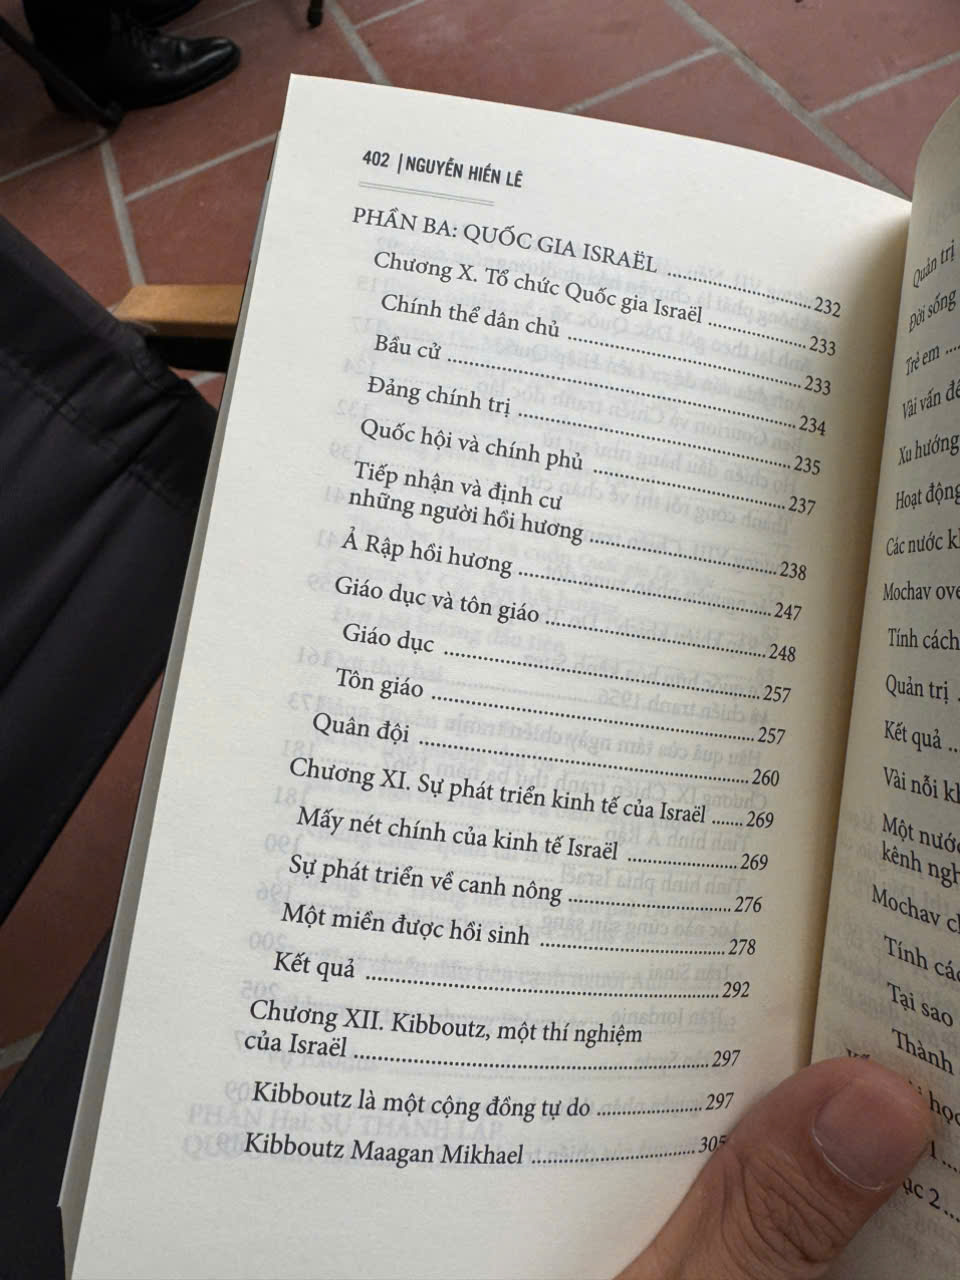 402 | NGUYỄN HIẾN LÊ
PHẦN BA: QUỐC GIA ISRAËL ........................ 232
Chương X. Tổ chức Quốc gia Israël ................... 233
Chính thể dân chủ ........................ 233
Bầu cử ........................ 234
Đảng chính trị ........................ 235
Quốc hội và chính phủ ........................ 237
Tiếp nhận và định cư
những người hồi hương ........................ 238
Ả Rập hồi hương ........................ 247
Giáo dục và tôn giáo ........................ 248
Giáo dục ........................ 257
Tôn giáo ........................ 257
Quân đội ........................ 260
Chương XI. Sự phát triển kinh tế của Israël ...... 269
Mấy nét chính của kinh tế Israël ........................ 269
Sự phát triển về canh nông ........................ 276
Một miền được hồi sinh ........................ 278
Kết quả ........................ 292
Chương XII. Kibboutz, một thí nghiệm
của Israël ........................ 297
Kibboutz là một cộng đồng tự do ........................ 297
Kibboutz Maagan Mikhael ........................ 305
Quản trị
Đời sống
Trẻ em ....
Vài vấn đề
Xu hướng
Hoạt động
Các nước
Mochav
Tính cách
Quản trị .
Kết quả ..
Vài nỗi
Một nước
kênh
Mochav
Tính
Tại sao
Thành
1 ...
2 ...